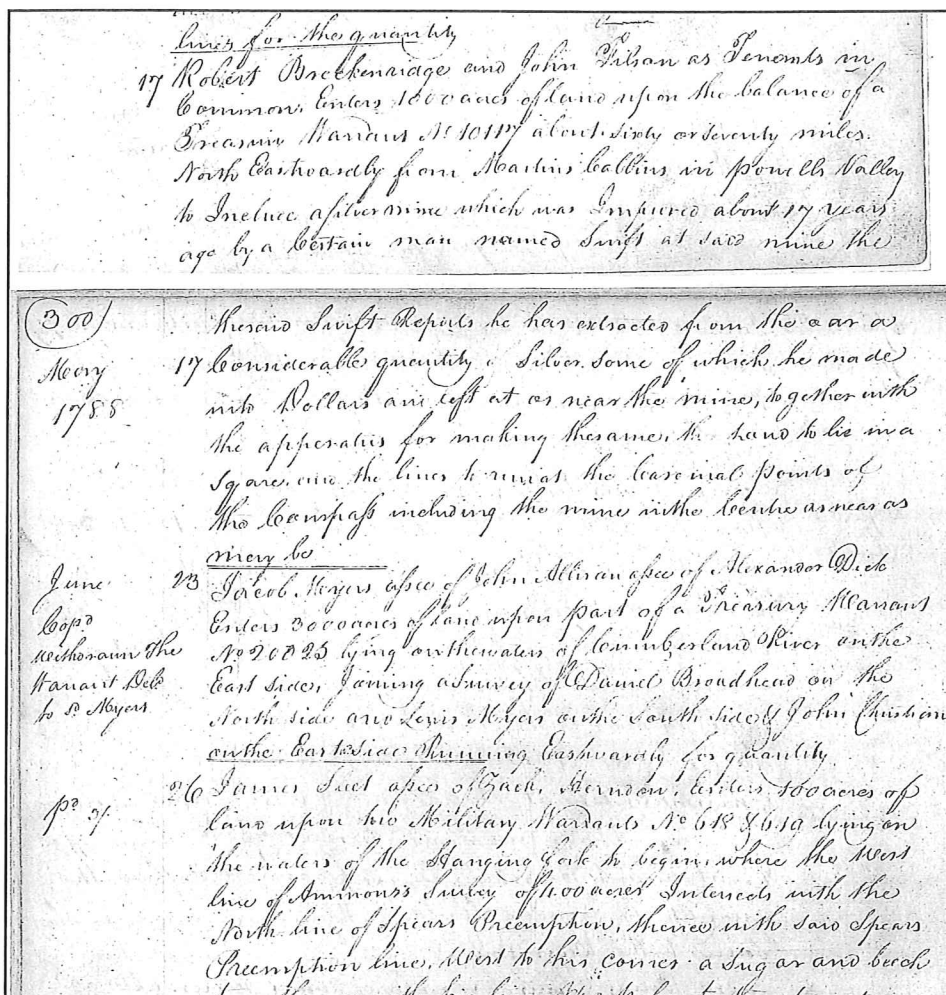 lines for the quantity
17 Robert Breckenridge and John Filson as Tenants in
Common, Enters 1000 acres of land upon the balance of a
Treasury Warrant No 10117 about sixty or seventy miles
North Eastwardly from Martins Cabbins in Powells Valley
to Include a silver mine which was Impured about 17 years
ago by a Certain man named Swift at said mine the
300
the said Swift Reports he has extracted from the oar a
May 17 Considerable quantity of Silver some of which he made
1788 into Dollars and left at or near the mine, together with
the apperatus for making the same, the Land to lie in a
Square and the lines to run at the Cardinal points of
the Compass including the mine in the Centre as near as
may be
June 23 Jacob Myers assee of John Allison assee of Alexander Dick
Enters 3000 acres of land upon part of a Treasury Warrant
Copd No 20825 lying on the waters of Cumberland River on the
Withdrawn The East side, Joining a Survey of Daniel Broadhead on the
Warrant Deld North side and Lewis Myers on the South side & John Christian
to sd Myers on the East side Running Eastwardly for quantity
26 James Suet assee of Zach. Herndon, Enters 1600 acres of
pd 3/. land upon two Military Warrants No 618 & 619 lying on
the waters of the Hanging fork to begin where the West
line of Ammons's Survey of 400 acres Intersects with the
North line of Spears Preemption, thence with said Spears
Preemption line, West to his corner a Sugar and beech